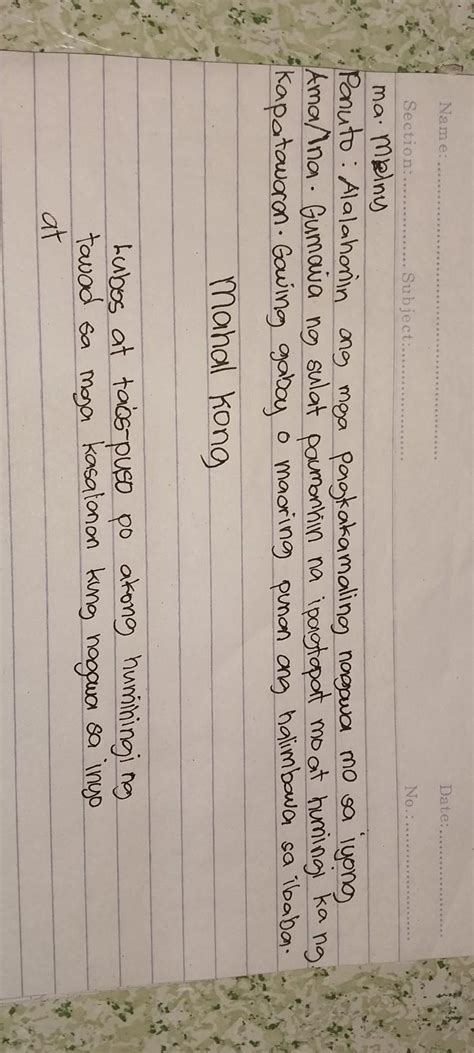 Name: Date:
Section: Subject: No.:
ma.
Panuto: Alalahanin ang mga pagkakamaling nagawa mo sa iyong
Ama/Ina. Gumawa ng sulat paumanhin na ipagtapat mo at humingi ka ng
kapatawaran. Gawing gabay o maaring punan ang halimbawa sa ibaba.
Mahal kong
Lubos at taos-puso po akong humihingi ng
tawad sa maga kasalanan kung nagawa sa inyo
at